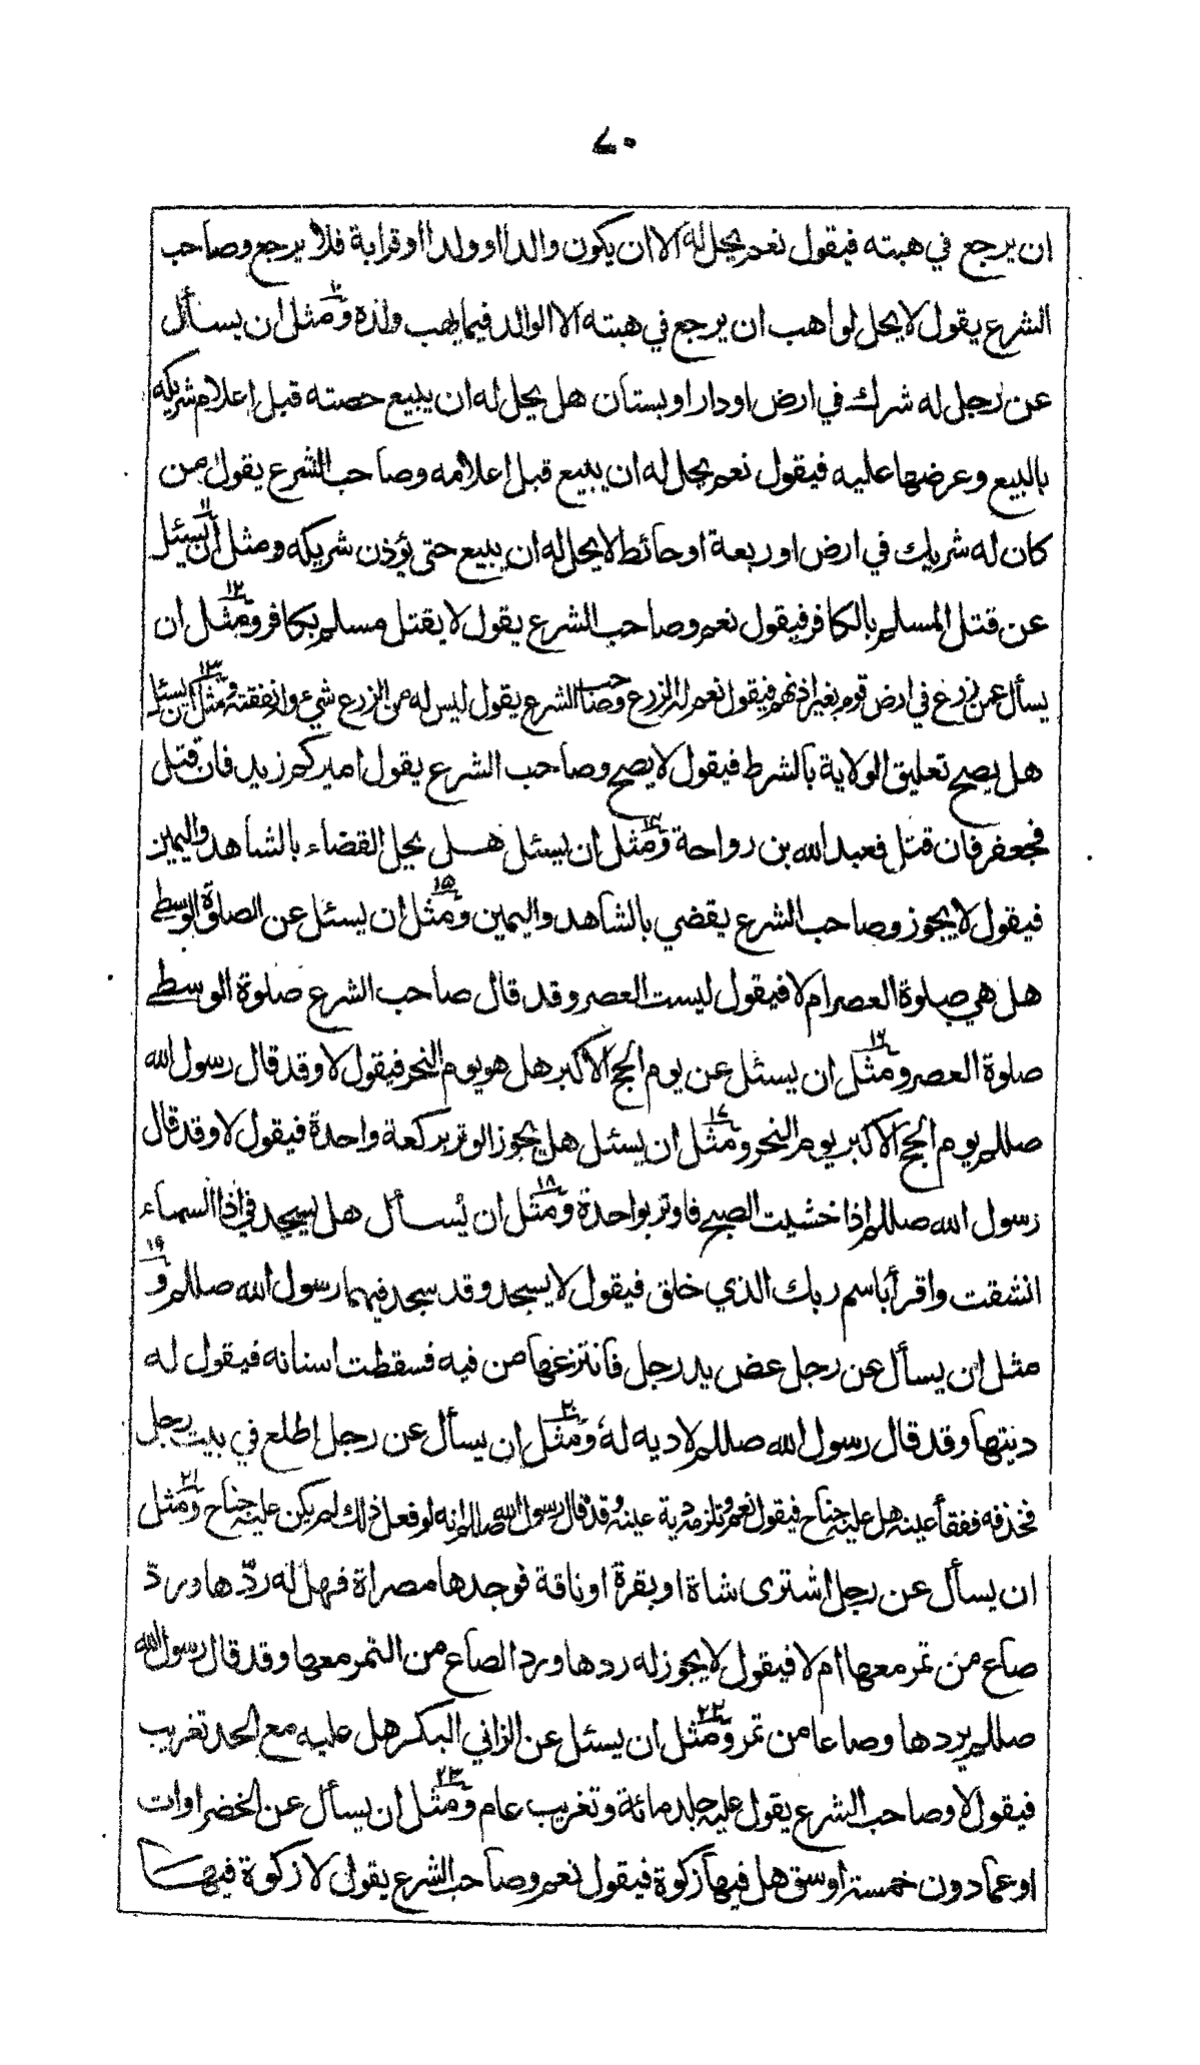 ٧٠
ان يرجع في هبته فيقول نعم يحل له الا ان يكون والدا او ولدا او قرابة فلا يرجع وصاحب
الشرع يقول لا يحل لواهب ان يرجع في هبته الا الوالد فيما يهب ولده ومثل ان يسأل
عن رجل له شرك في ارض او دار او بستان هل يحل له ان يبيع حصته قبل اعلام شريكه
بالبيع وعرضها عليه فيقول نعم يحل له ان يبيع قبل اعلامه وصاحب الشرع يقول من
كان له شريك في ارض او ربعة او حائط لا يحل له ان يبيع حتى يؤذن شريكه ومثل ان يسئل ١١
عن قتل المسلم بالكافر فيقول نعم وصاحب الشرع يقول لا يقتل مسلم بكافر ومثل ١٢ ان
يسأل عمن زرع في ارض قوم بغير اذنهم فيقول نعم له الزرع وصاحب الشرع يقول ليس له من الزرع شيء وله نفقته ومثل ١٣ ان يسئل
هل يصح تعليق الولاية بالشرط فيقول لا يصح وصاحب الشرع يقول اميركم زيد فان قتل
فجعفر فان قتل فعبد الله بن رواحة ومثل ١٤ ان يسئل هل يحل القضاء بالشاهد واليمين
فيقول لا يجوز وصاحب الشرع يقضي بالشاهد واليمين ومثل ١٥ ان يسئل عن الصلوة الوسطے
هل هي صلوة العصر ام لا فيقول ليست العصر وقد قال صاحب الشرع صلوة الوسطے
صلوة العصر ومثل ١٦ ان يسئل عن يوم الحج الاكبر هل هو يوم النحر فيقول لا وقد قال رسول الله
صللم يوم الحج الاكبر يوم النحر ومثل ١٧ ان يسئل هل يجوز الوتر بركعة واحدة فيقول لا وقد قال
رسول الله صللم اذا خشيت الصبح فاوتر بواحدة ومثل ١٨ ان يُسأل هل يسجد في اذا السماء
انشقت واقرأ باسم ربك الذي خلق فيقول لا يسجد وقد سجد فيهما رسول الله صللم و ١٩
مثل ان يسأل عن رجل عض يد رجل فانتزعها من فيه فسقطت اسنانه فيقول له
ديتها وقد قال رسول الله صللم لا دية له ومثل ٢٠ ان يسأل عن رجل اطلع في بيت رجل
فخذفه ففقأ عينه هل عليه جناح فيقول نعم وتلزمه دية عينه وقد قال رسول الله صللم انه لو فعل ذلك لم يكن عليه جناح ومثل ٢١
ان يسأل عن رجل اشترى شاة او بقرة او ناقة فوجدها مصراة فهل له ردّها ورد
صاع من تمر معها ام لا فيقول لا يجوز له ردها ورد الصاع من التمر معها وقد قال رسول الله
صللم يردها وصاعا من تمر ومثل ٢٢ ان يسئل عن الزاني البكر هل عليه مع الحد تغريب
فيقول لا وصاحب الشرع يقول عليه جلد مائة وتغريب عام ومثل ٢٣ ان يسأل عن الخضراوات
او عما دون خمسة اوسق هل فيها زكوة فيقول نعم وصاحب الشرع يقول لا زكوة فيها